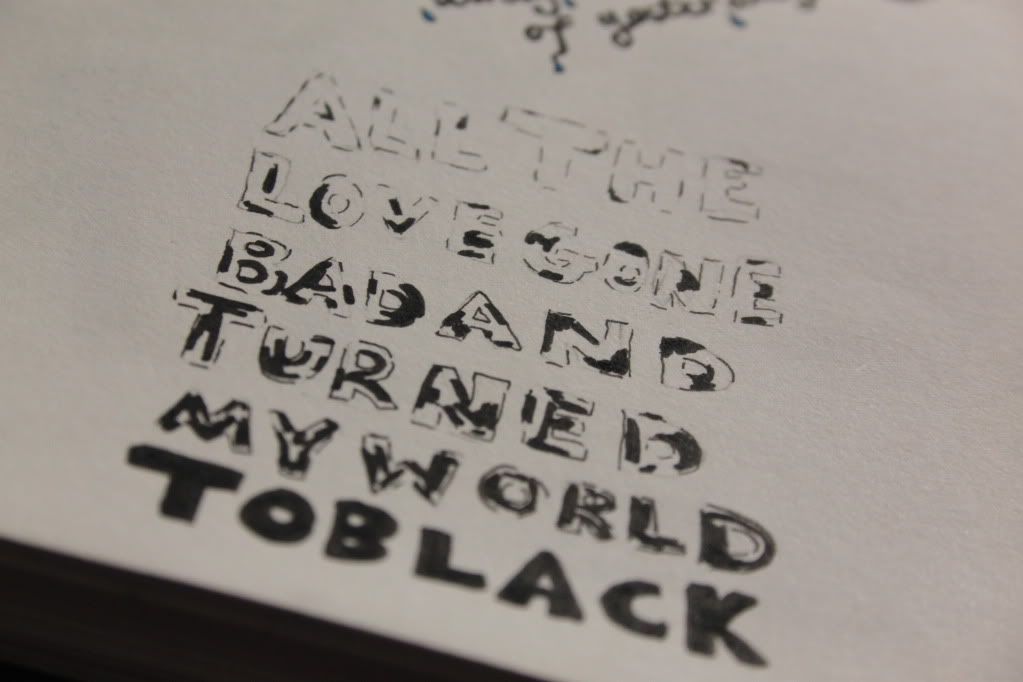 ALL THE
LOVE GONE
BAD AND
TURNED
MY WORLD
TO BLACK